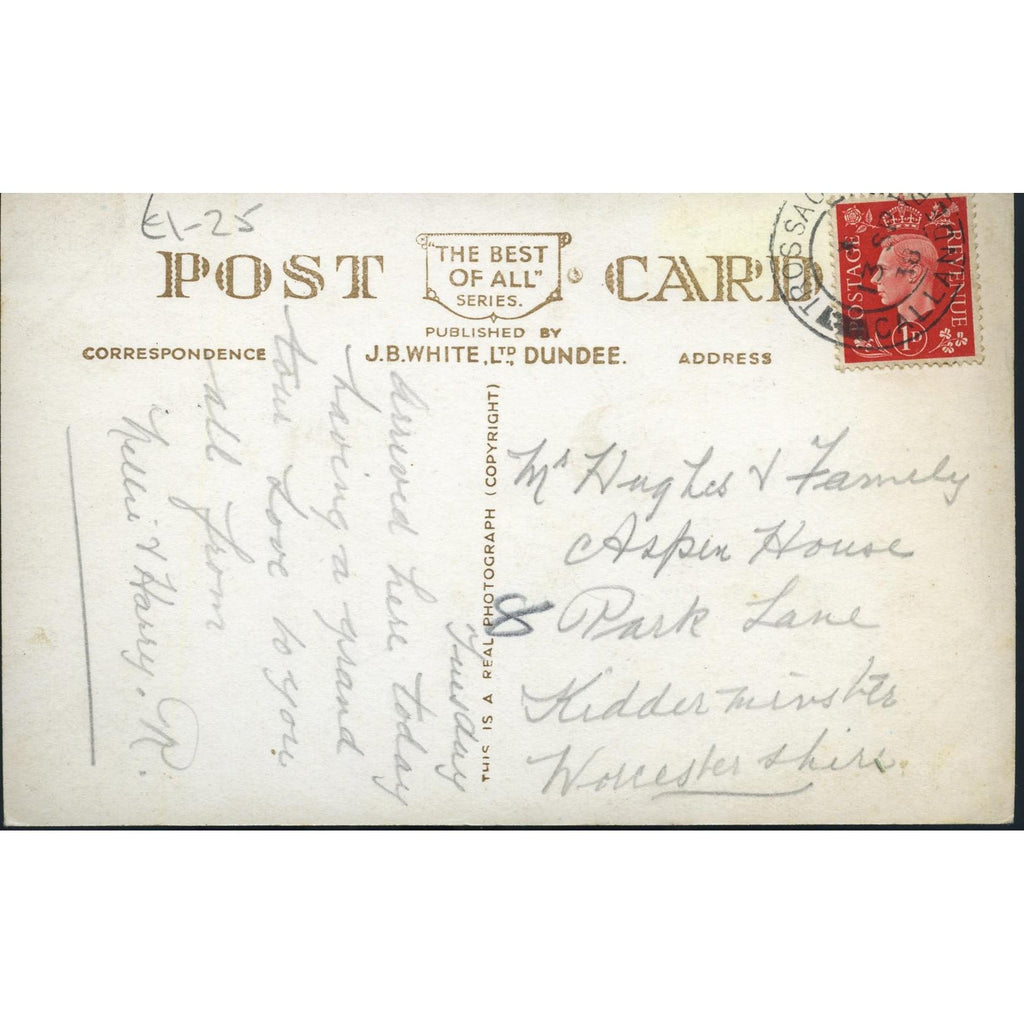 £1-25
POST CARD
"THE BEST
OF ALL"
SERIES.
PUBLISHED BY
J.B.WHITE, LTD., DUNDEE.
CORRESPONDENCE
ADDRESS
POSTAGE REVENUE
1D
TROSSACHS
CALLANDER
13 SP
38
THIS IS A REAL PHOTOGRAPH (COPYRIGHT)
Tuesday
Arrived here today
having a grand
tour Love to you
all from
Nellie & Harry.
Mrs Hughes & Family
Aspen House
Park Lane
Kidderminster
Worcestershire
8